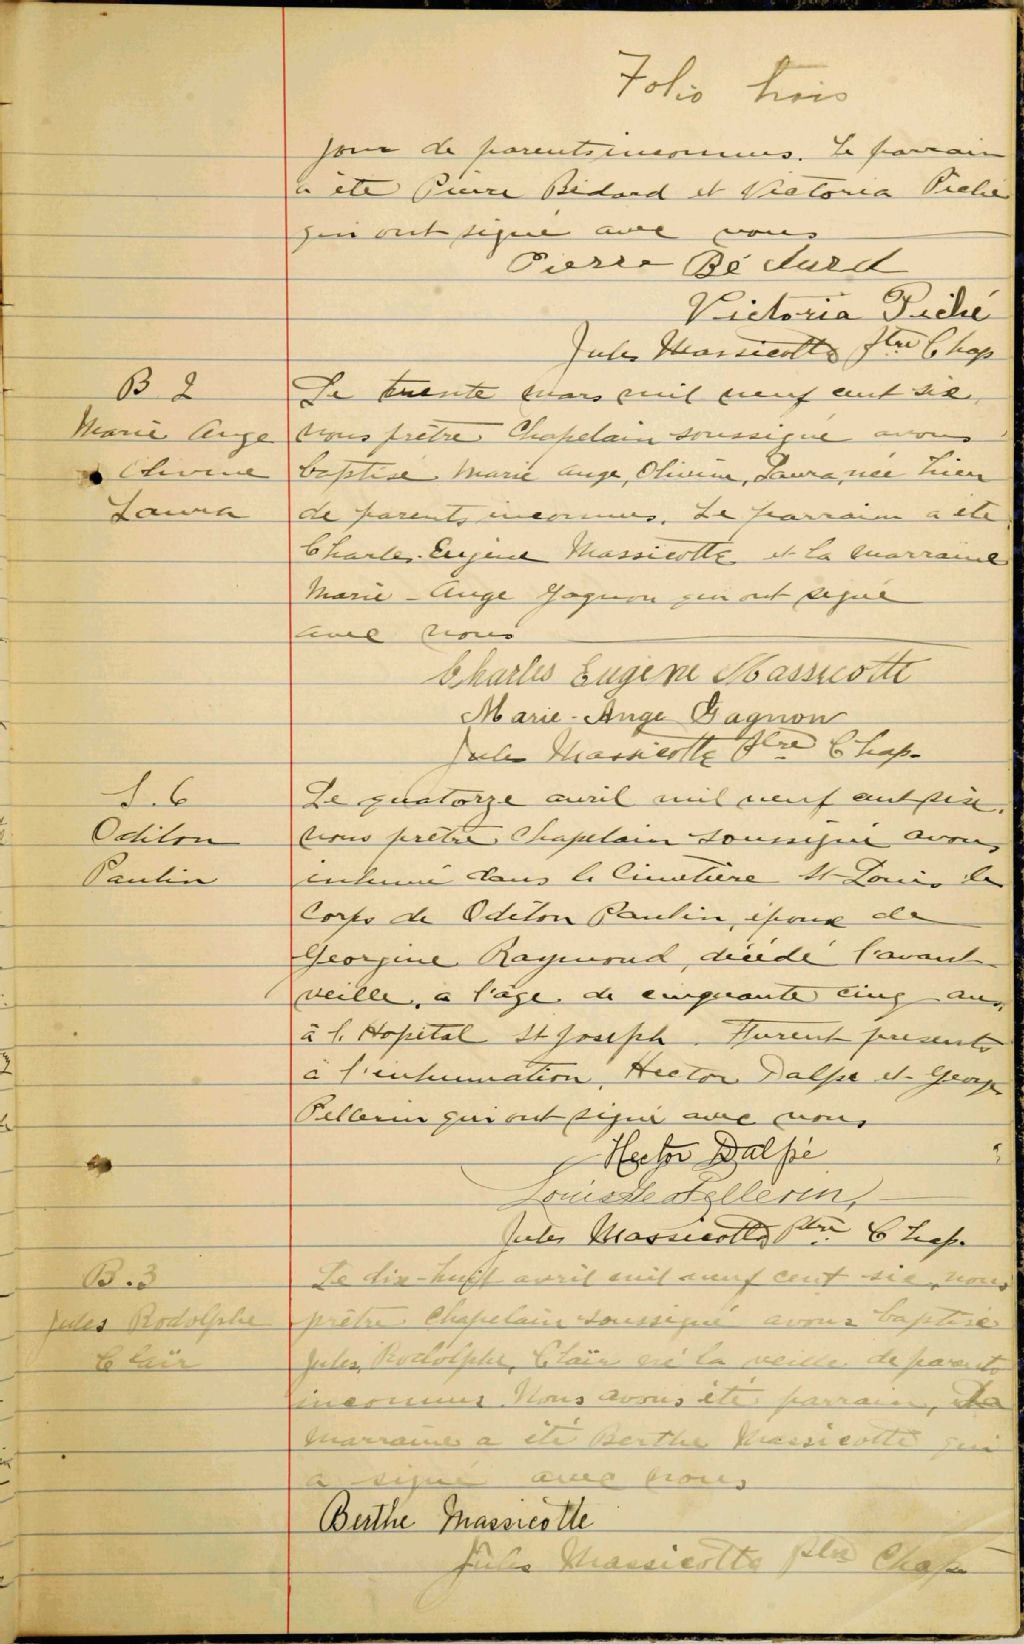 Folio trois
jour de parents inconnus. Le parrain
a été Pierre Bédard et Victoria Piché
qui ont signé avec nous
Pierre Bédard
Victoria Piché
Jules Massicotte ptre Chap
B 2
Marie Ange
Olivine
Laura
Le trente mars mil neuf cent six,
nous prêtre Chapelain soussigné avons
baptisé Marie Ange, Olivine, Laura, née hier
de parents inconnus. Le parrain a été
Charles-Eugène Massicotte et la marraine
Marie-Ange Gagnon qui ont signé
avec nous
Charles Eugène Massicotte
Marie-Ange Gagnon
Jules Massicotte ptre Chap.
S. 6
Odilon
Paulin
Le quatorze avril mil neuf cent six,
nous prêtre Chapelain soussigné avons
inhumé dans le Cimetière St Louis le
Corps de Odilon Paulin, époux de
Georgine Raymond, décédé l'avant-
veille, a l'âge de cinquante cinq ans,
à l'Hopital St Joseph. Furent presents
à l'inhumation, Hector Dalpé et George
Pellerin qui ont signé avec nous
Hector Dalpé
Louis Pellerin,
Jules Massicotte ptre Chap.
B. 3
Jules Rodolphe
Claïr
Le dix-huit avril mil neuf cent six, nous
prêtre Chapelain soussigné avons baptisé
Jules, Rodolphe, Claïr né la veille de parents
inconnus. Nous avons été parrain, La
marraine a été Berthe Massicotte qui
a signé avec nous
Berthe Massicotte
Jules Massicotte ptre Chap